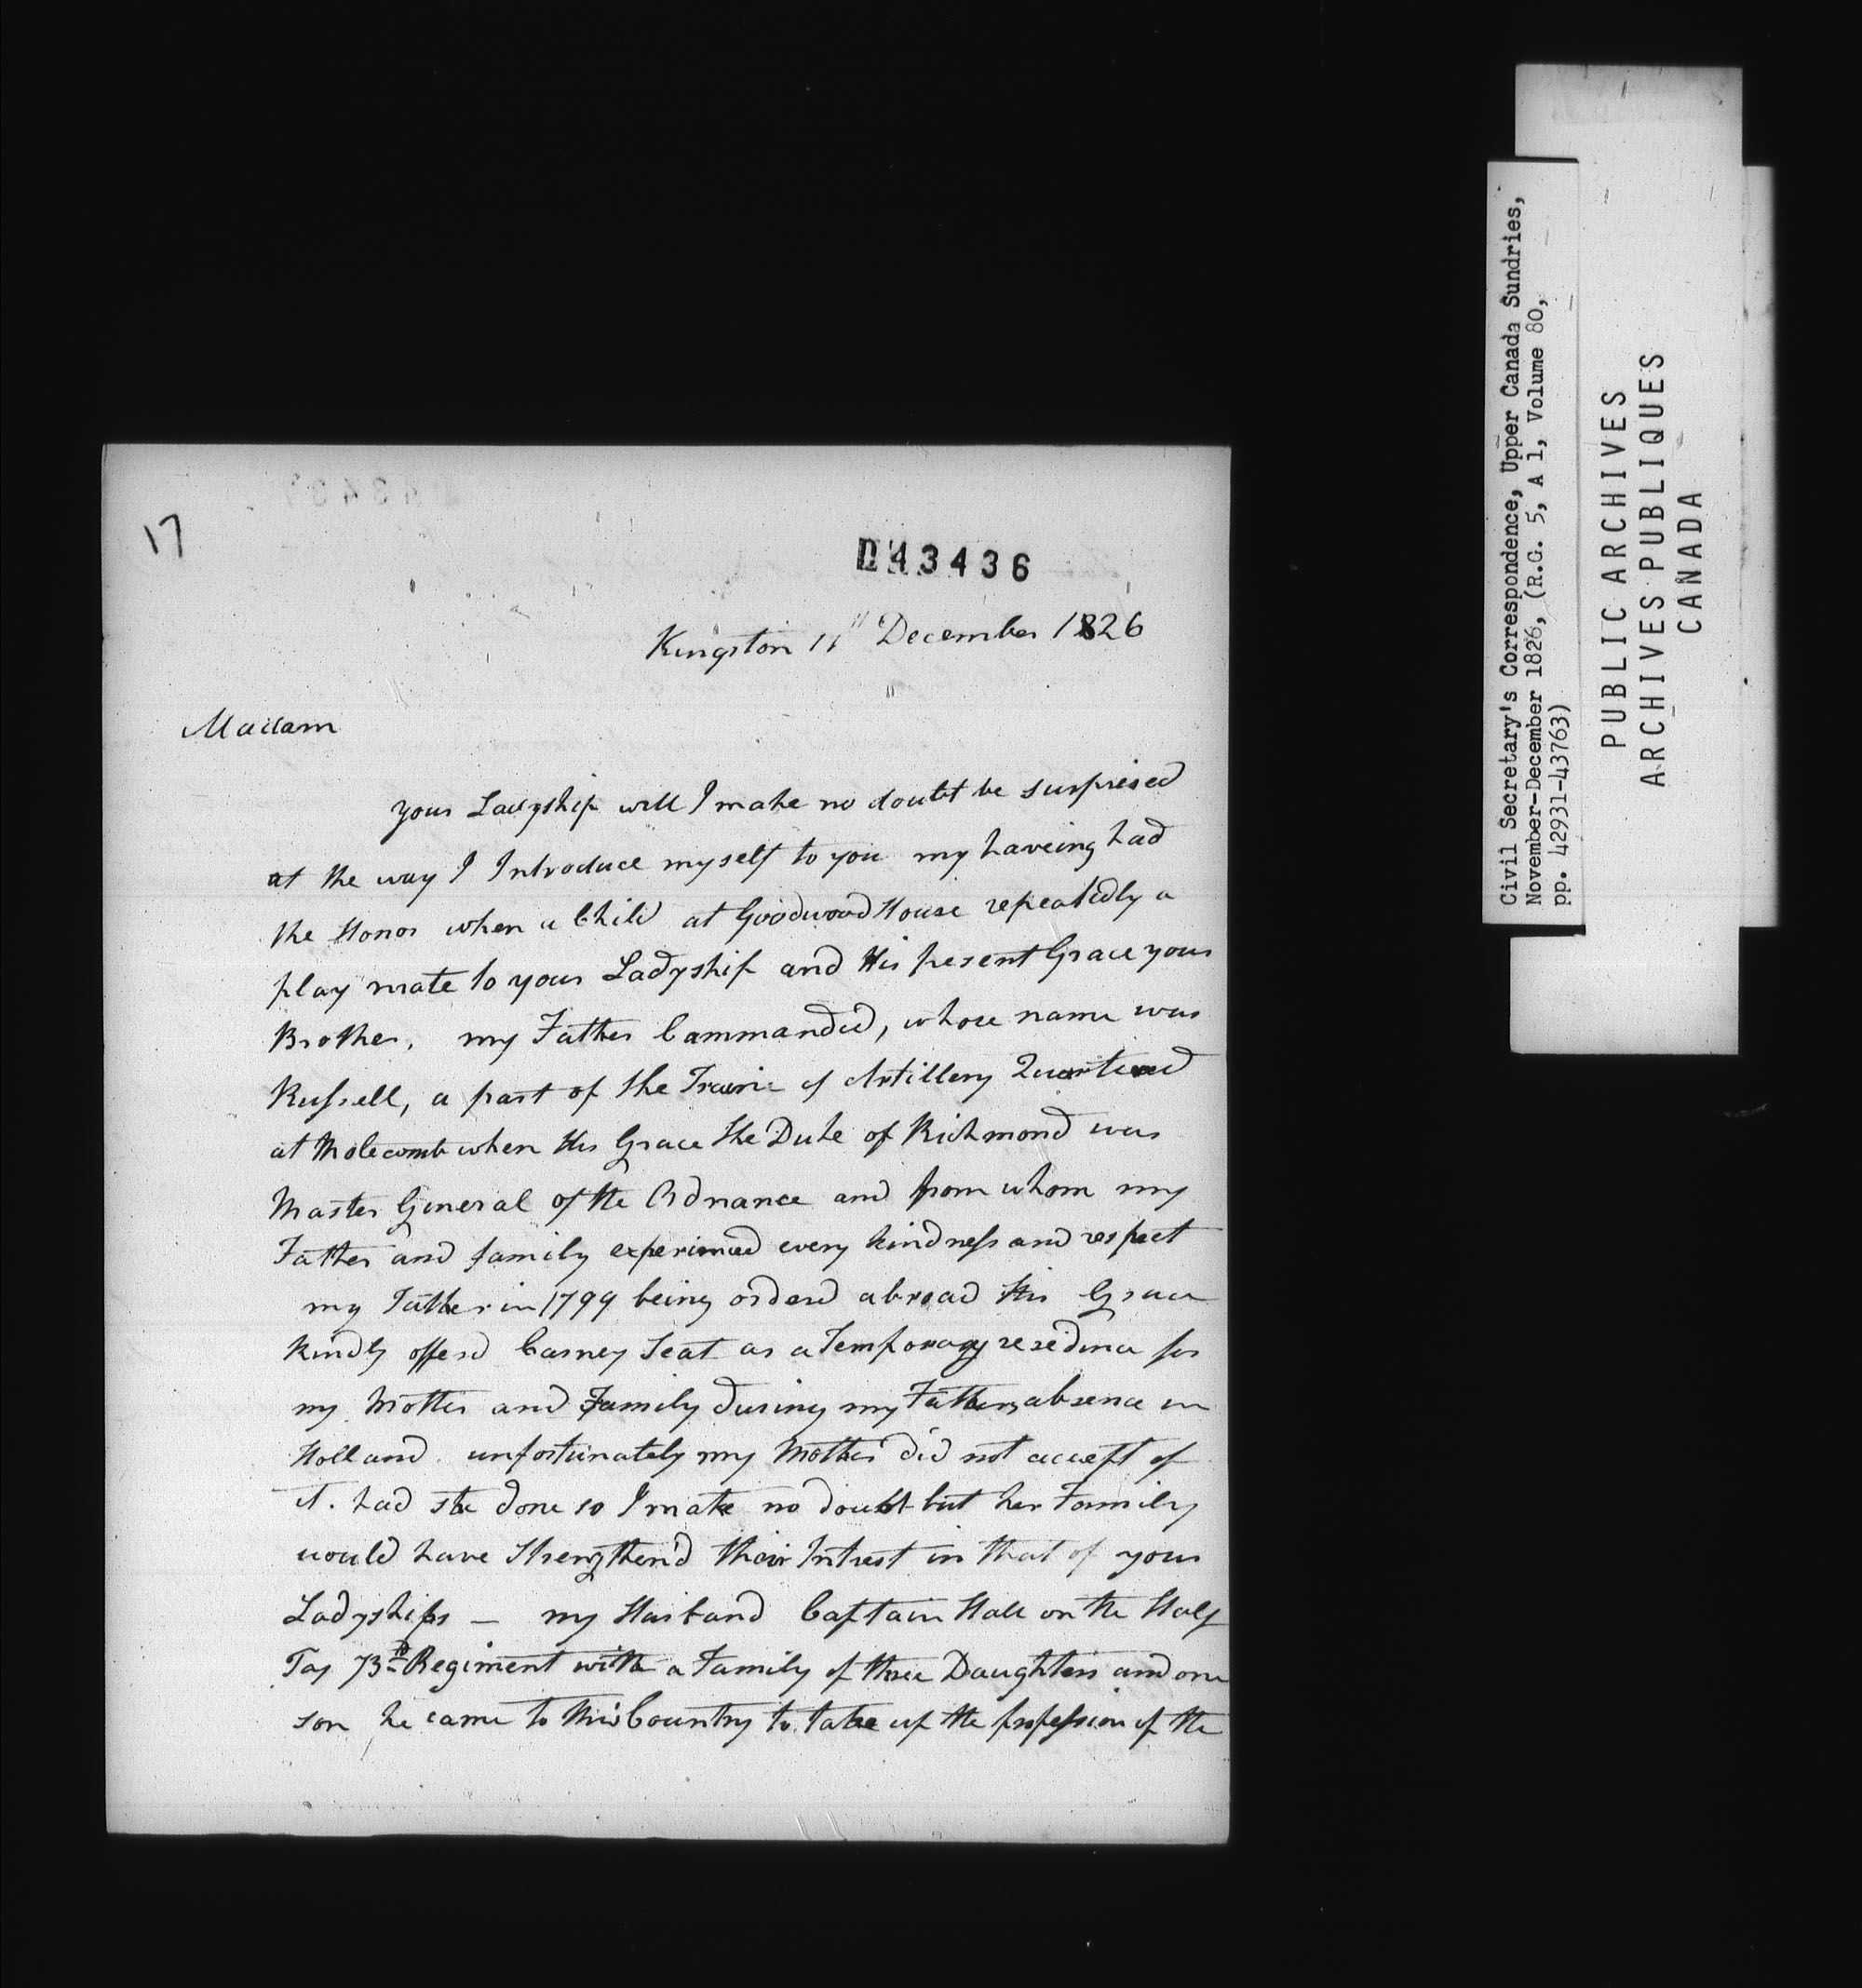 17
043436
Kingston 11" December 1826
Madam
your Ladyship will I make no doubt be surprised
at the way I Introduce myself to you my haveing had
the Honor when a Child at Goodwood House repeatedly a
play mate to your Ladyship and His present Grace your
Brother, my Father Commanded, whose name was
Russell, a part of the Train of Artillery Quartered
at Molecomb when His Grace the Duke of Richmond was
Master General of the Ordnance and from whom my
Father and family experienced every kindness and respect
my Father in 1799 being orderd abroad His Grace
kindly offerd Carney Seat as a Temporary residence for
my Mother and Family during my Fathers absence in
Holland. unfortunately my Mother did not accept of
it. had she done so I make no doubt but her Family
would have Strengthen'd their Intrest in that of your
Ladyships — my Husband Captain Hall on the Half
Pay 73d Regiment with a Family of three Daughters and one
son he came to this Country to take up the profession of the
Civil Secretary's Correspondence, Upper Canada Sundries,
November-December 1826, (R.G. 5, A 1, Volume 80,
pp. 42931-43763)
PUBLIC ARCHIVES
ARCHIVES PUBLIQUES
CANADA